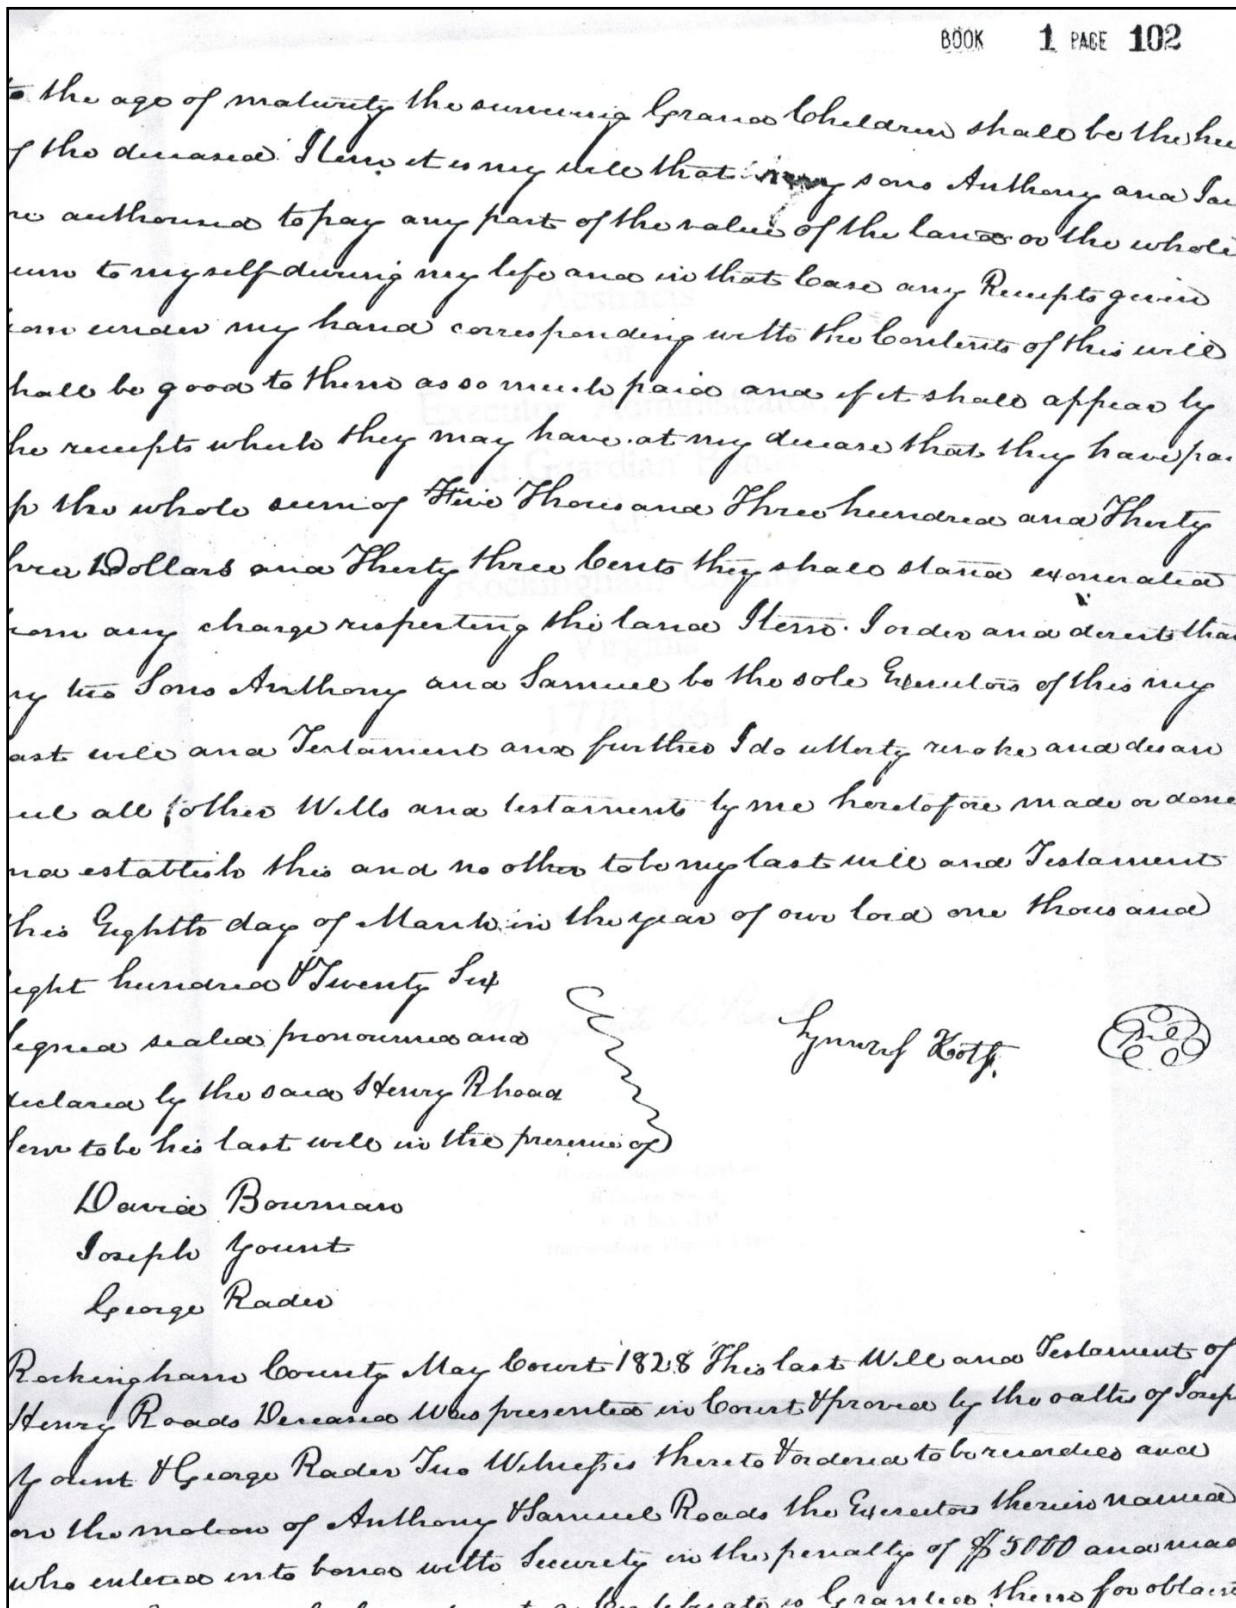 BOOK 1 PAGE 102
the age of maturity the surviving Grand Children shall be the
the deceased Item it is my will that my sons Anthony and
authorised to pay any part of the value of the land or the whole
to myself during my life and in that Case any Receipts given
under my hand corresponding with the Contents of this will
hall be good to them as so much paid and if it shall appear by
he receipts which they may have at my decease that they have pa
p the whole sum of Five Thousand Three hundred and Thirty
hree Dollars and Thirty three Cents they shall stand exonerated
rom any charge respecting the land Item. I order and direct that
my two Sons Anthony and Samuel be the sole Executors of this my
ast will and Testament and further I do utterly revoke and disan
ul all other Wills and testaments by me heretofore made or done
nd establish this and no other to be my last will and Testament
his Eighth day of March in the year of our lord one thousand
ight hundred & Twenty Six
igned sealed pronounced and
eclared by the said Henry Rhoad
Senr to be his last will in the presence of
David Bowman
Joseph Yount
George Rader
Rockingham County May Court 1828 This last Will and Testament of
Henry Roads Deceased Was presented in Court & proved by the oaths of Josep
Yount & George Rader Two Witnesses thereto & ordered to be recorded and
on the motion of Anthony & Samuel Roads the Executors therein named
who entered into bond with Security in the penalty of $5000 and mad
is Granted them for obtain